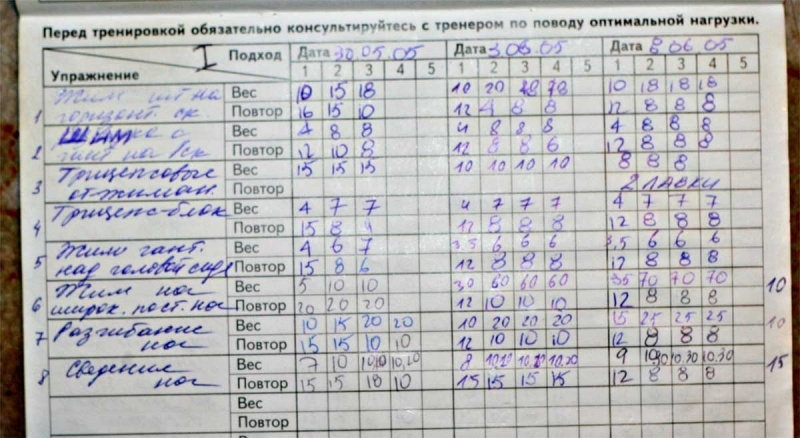 Перед тренировкой обязательно консультируйтесь с тренером по поводу оптимальной нагрузки.
I Подход Дата 30.05.05 Дата 3.06.05 Дата 8.06.05
Упражнение 1 2 3 4 5 1 2 3 4 5 1 2 3 4 5
1 Жим шт на Вес 10 15 18 10 20 18 18 10 18 18 18
горизонт ск. Повтор 16 15 10 12 8 8 12 8 8 8
Вес 4 8 8 4 8 8 8 4 8 8 8
2 гант на Повтор 12 10 8 12 8 8 6 12 8 8 8
3 Трицепсовые Вес 15 15 15 10 10 10 10 8 8 8
от-жиман. Повтор 2 ЛАВКИ
4 Трицепс-блок Вес 4 7 7 4 7 7 7 4 7 7 7
Повтор 15 8 12 8 8 8 12 8 8 8
5 Жим гант. Вес 4 6 7 3,5 6 6 6 3,5 6 6 6
над головой сидя Повтор 15 8 6 12 8 8 8 12 8 8 8
6 Жим ног Вес 5 10 10 30 60 60 60 35 70 70 70 10
широк. пост. ног Повтор 20 20 20 12 10 10 10 12 8 8 8
7 Разгибание Вес 10 15 20 20 10 20 20 20 15 25 25 25 10
ног Повтор 15 15 10 10 12 10 10 10 12 8 8 8
8 Сведение Вес 7 10 10,10 10,20 8 10.20 10.20 10.20 9 10.30 10.30 15
ног Повтор 15 15 10 10 15 15 15 15 12 8 8 8
Вес
Повтор
Вес